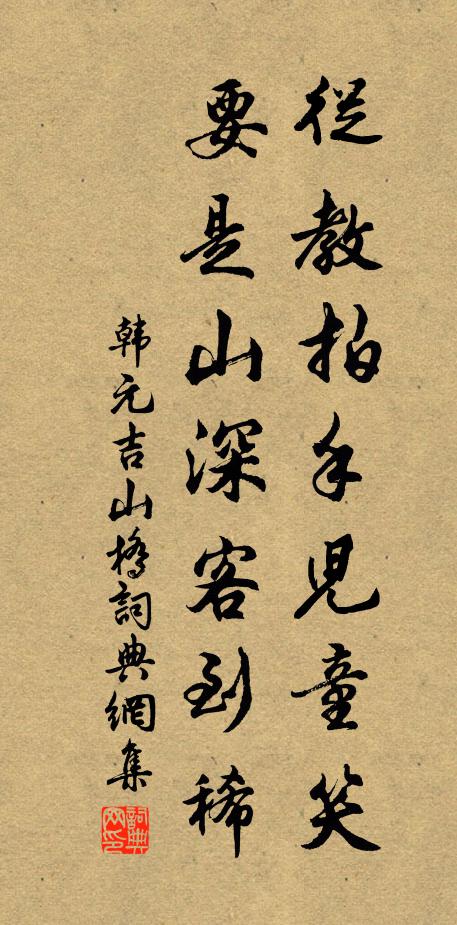 從教拍手兒童笑
要是山深客到稀
韩元吉山橋詞典網集
詞典网印